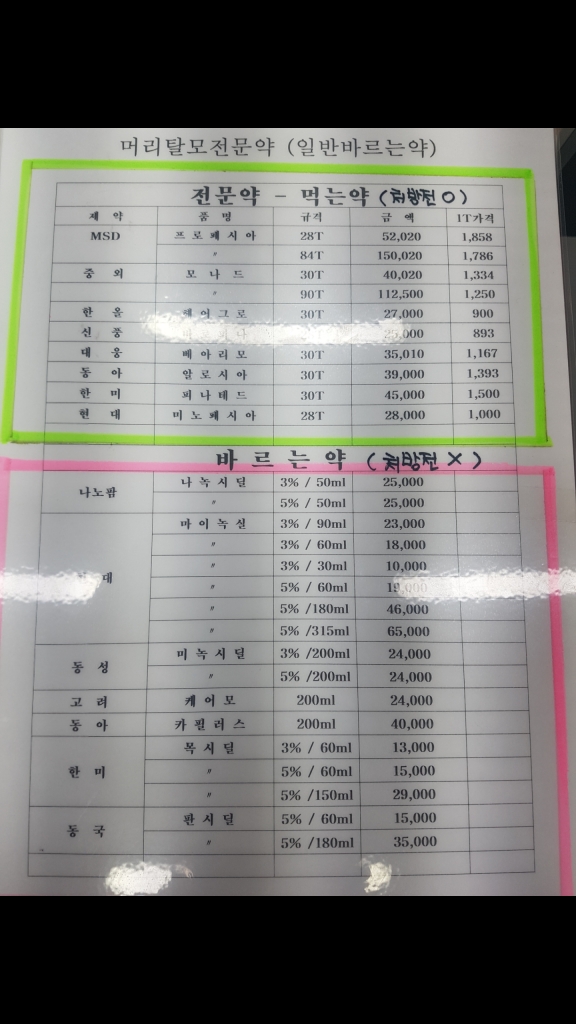 머리탈모전문약 (일반바르는약)
전문약 - 먹는약 (처방전 O)
제 약 품 명 규격 금 액 1T가격
MSD 프로페시아 28T 52,020 1,858
〃 84T 150,020 1,786
중 외 모 나 드 30T 40,020 1,334
〃 90T 112,500 1,250
한 율 헤어그로 30T 27,000 900
신 풍 30T 25,000 893
대 웅 베아리모 30T 35,010 1,167
동 아 알로시아 30T 39,000 1,393
한 미 피나테드 30T 45,000 1,500
현 대 미노페시아 28T 28,000 1,000
바 르 는 약 (처방전 X)
나노팜 나녹시딜 3% / 50ml 25,000
〃 5% / 50ml 25,000
대 마이녹실 3% / 90ml 23,000
〃 3% / 60ml 18,000
〃 3% / 30ml 10,000
〃 5% / 60ml 19,000
〃 5% /180ml 46,000
〃 5% /315ml 65,000
동 성 미녹시딜 3% /200ml 24,000
〃 5% /200ml 24,000
고 려 케어모 200ml 24,000
동 아 카필러스 200ml 40,000
한 미 목시딜 3% / 60ml 13,000
〃 5% / 60ml 15,000
〃 5% /150ml 29,000
동 국 판시딜 5% / 60ml 15,000
〃 5% /180ml 35,000